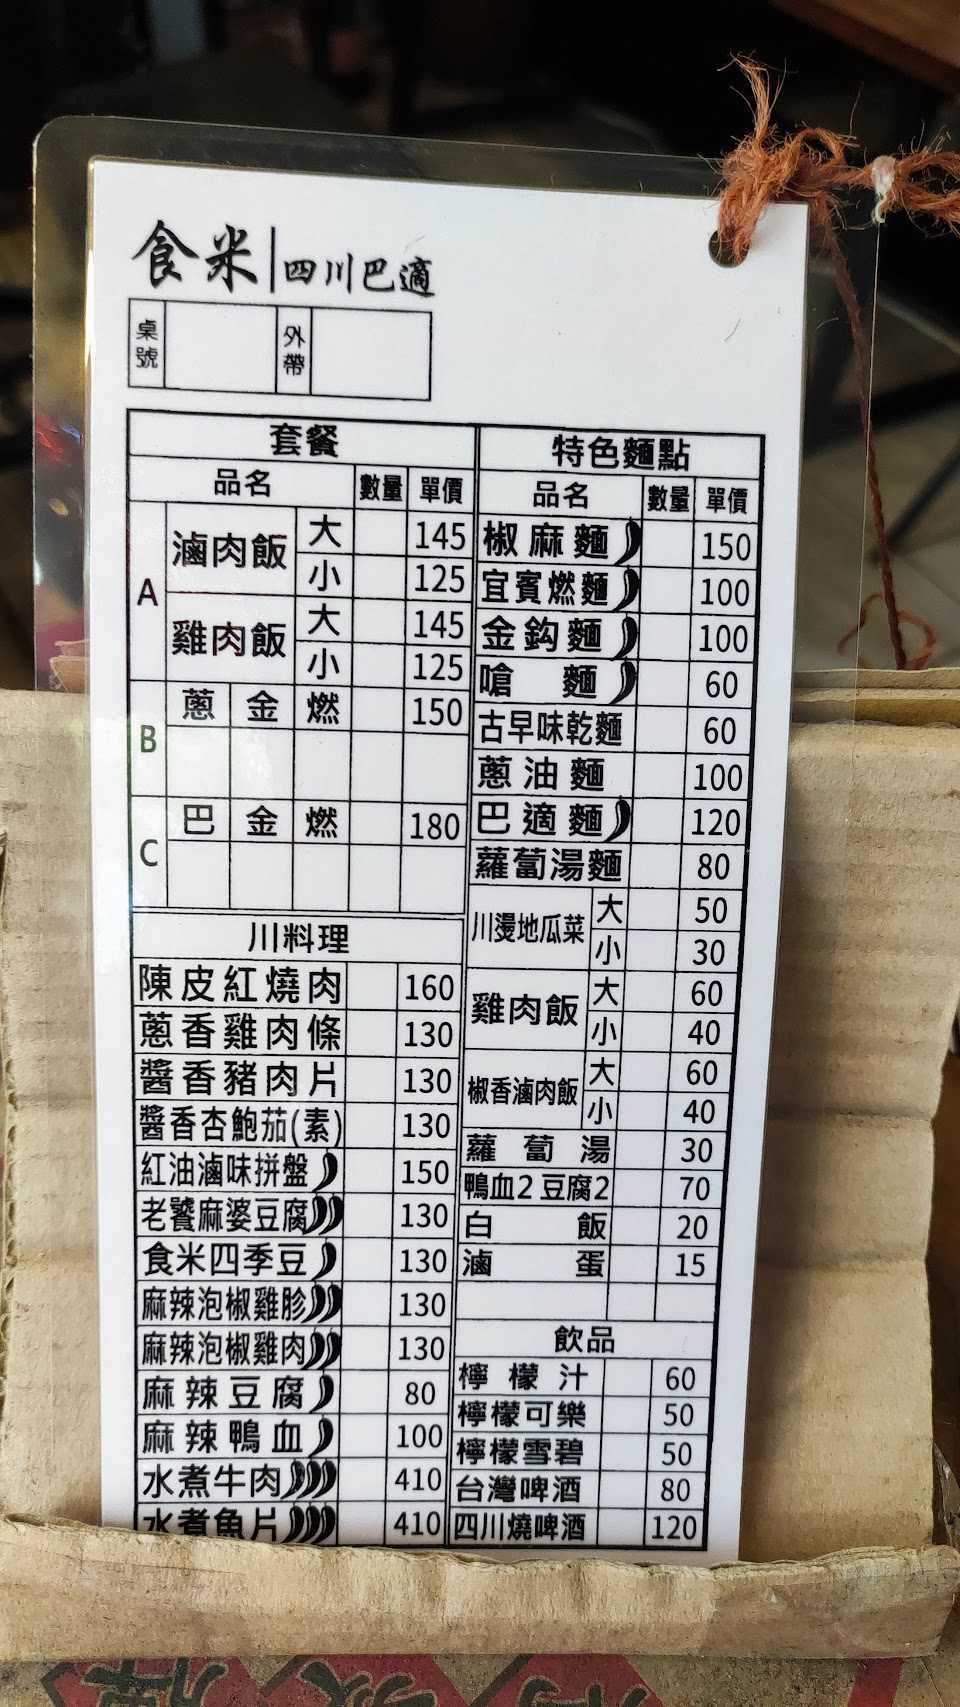 食米|四川巴適
桌號
外帶
套餐
品名 數量 單價
A
滷肉飯 大 145
小 125
雞肉飯 大 145
小 125
B
蔥 金 燃 150
C
巴 金 燃 180
川料理
陳皮紅燒肉 160
蔥香雞肉條 130
醬香豬肉片 130
醬香杏鮑茄(素) 130
紅油滷味拼盤 150
老饕麻婆豆腐 130
食米四季豆 130
麻辣泡椒雞胗 130
麻辣泡椒雞肉 130
麻辣豆腐 80
麻辣鴨血 100
水煮牛肉 410
水煮魚片 410
特色麵點
品名 數量 單價
椒麻麵 150
宜賓燃麵 100
金鈎麵 100
嗆麵 60
古早味乾麵 60
蔥油麵 100
巴適麵 120
蘿蔔湯麵 80
川燙地瓜菜 大 50
小 30
雞肉飯 大 60
小 40
椒香滷肉飯 大 60
小 40
蘿蔔湯 30
鴨血2豆腐2 70
白飯 20
滷蛋 15
飲品
檸檬汁 60
檸檬可樂 50
檸檬雪碧 50
台灣啤酒 80
四川燒啤酒 120